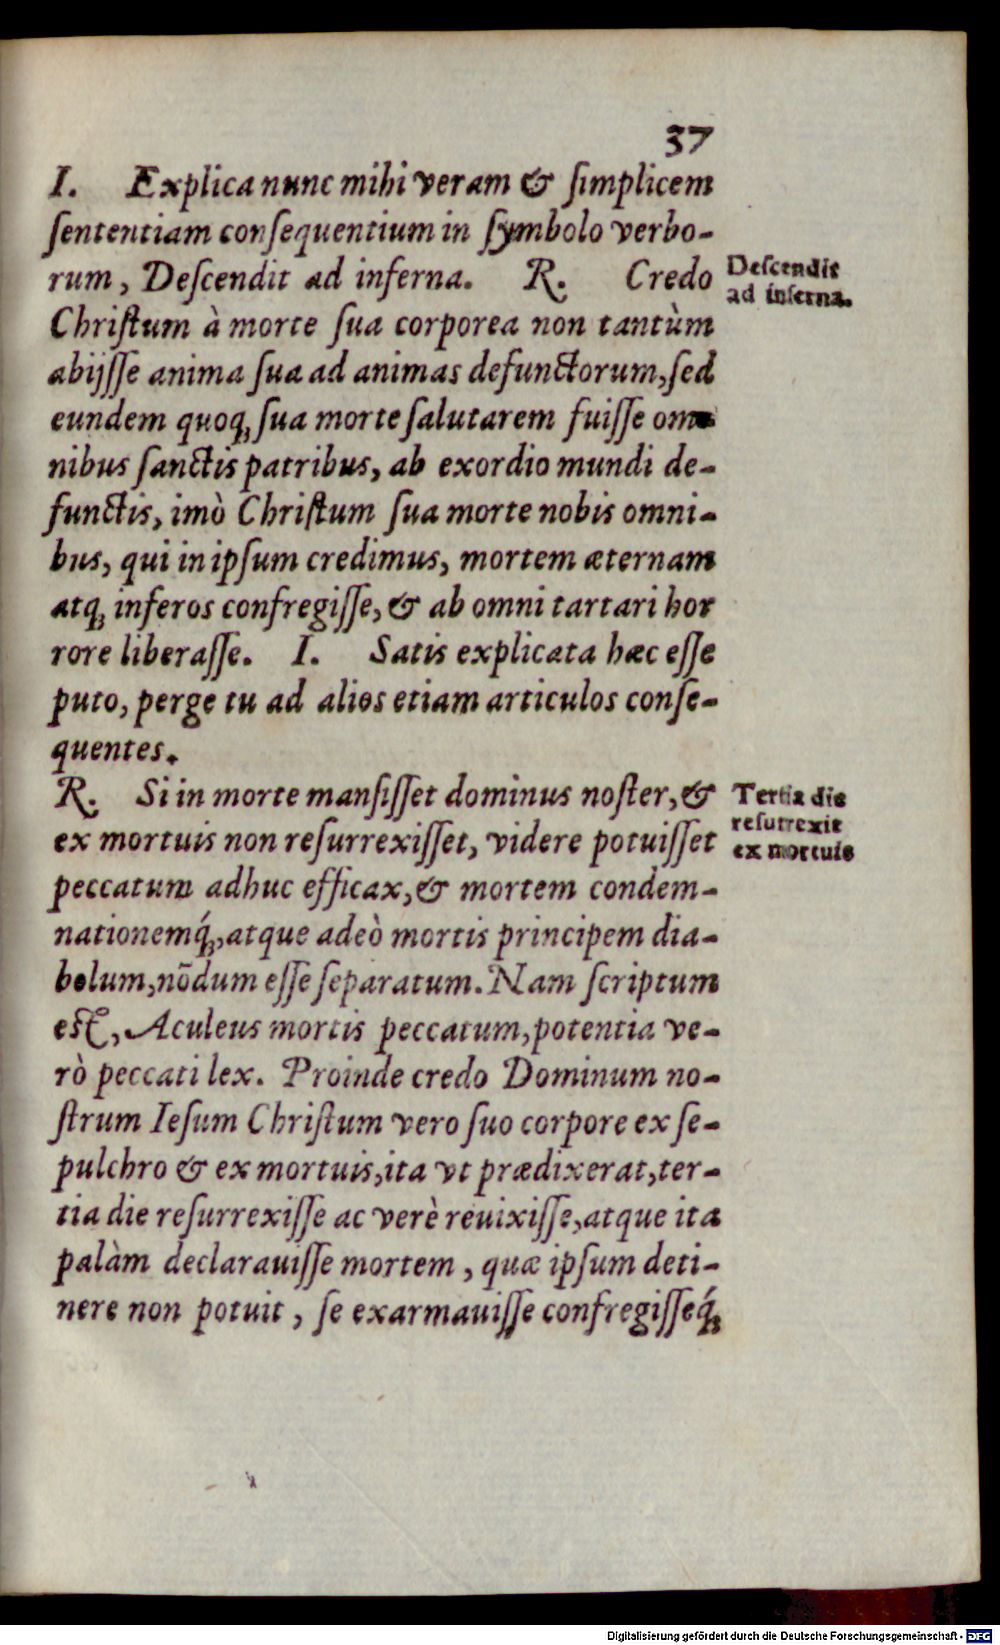 37
I. Explica nunc mihi veram & ſimplicem
ſententiam conſequentium in ſymbolo verbo-
rum, Deſcendit ad inferna. R. Credo
Chriſtum à morte ſua corporea non tantùm
abijſſe anima ſua ad animas defunctorum, ſed
eundem quoq; ſua morte ſalutarem fuiſſe om-
nibus ſanctis patribus, ab exordio mundi de-
functis, imò Chriſtum ſua morte nobis omni-
bus, qui in ipſum credimus, mortem æternam
atq; inferos confregiſſe, & ab omni tartari hor
rore liberaſſe. I. Satis explicata hæc eſſe
puto, perge tu ad alios etiam articulos conſe-
quentes.
Deſcendit
ad inferna.
R. Si in morte manſiſſet dominus noſter, &
ex mortuis non reſurrexiſſet, videre potuiſſet
peccatum adhuc efficax, & mortem condem-
nationemq́;, atque adeò mortis principem dia-
bolum, nõdum eſſe ſeparatum. Nam ſcriptum
eſt, Aculeus mortis peccatum, potentia ve-
rò peccati lex. Proinde credo Dominum no-
ſtrum Ieſum Chriſtum vero ſuo corpore ex ſe-
pulchro & ex mortuis, ita vt prædixerat, ter-
tia die reſurrexiſſe ac verè reuixiſſe, atque ita
palàm declarauiſſe mortem, quæ ipſum deti-
nere non potuit, ſe exarmauiſſe confregiſſeq́;
Tertia die
reſurrexit
ex mortuis
Digitalisierung gefördert durch die Deutsche Forschungsgemeinschaft - DFG